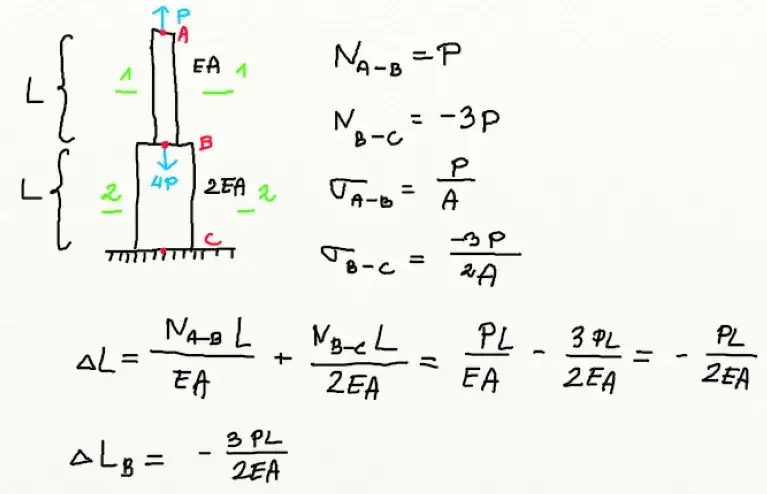 P
A
L
1
EA
1
B
4P
L
2
2EA
2
C
N_{A-B} = P
N_{B-C} = -3P
σ_{A-B} = P/A
σ_{B-C} = -3P/2A
ΔL = N_{A-B} L/EA + N_{B-C} L/2EA = PL/EA - 3PL/2EA = - PL/2EA
ΔL_B = - 3PL/2EA